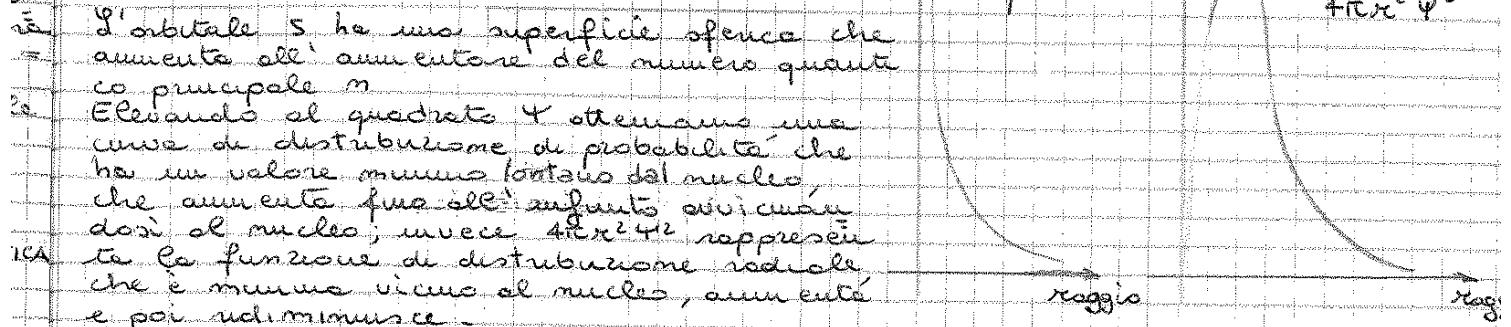 L'orbitale s ha una superficie sferica che
aumenta all'aumentare del numero quanti
co principale n
Elevando al quadrato Ψ otteniamo una
curva di distribuzione di probabilità che
ha un valore minimo lontano dal nucleo,
che aumenta fino all'infinito avvicinan
dosi al nucleo; invece 4πr²Ψ² rappresen
ta la funzione di distribuzione radiale,
che è minima vicino al nucleo, aumenta
e poi ridiminuisce.
4πr²Ψ²
raggio